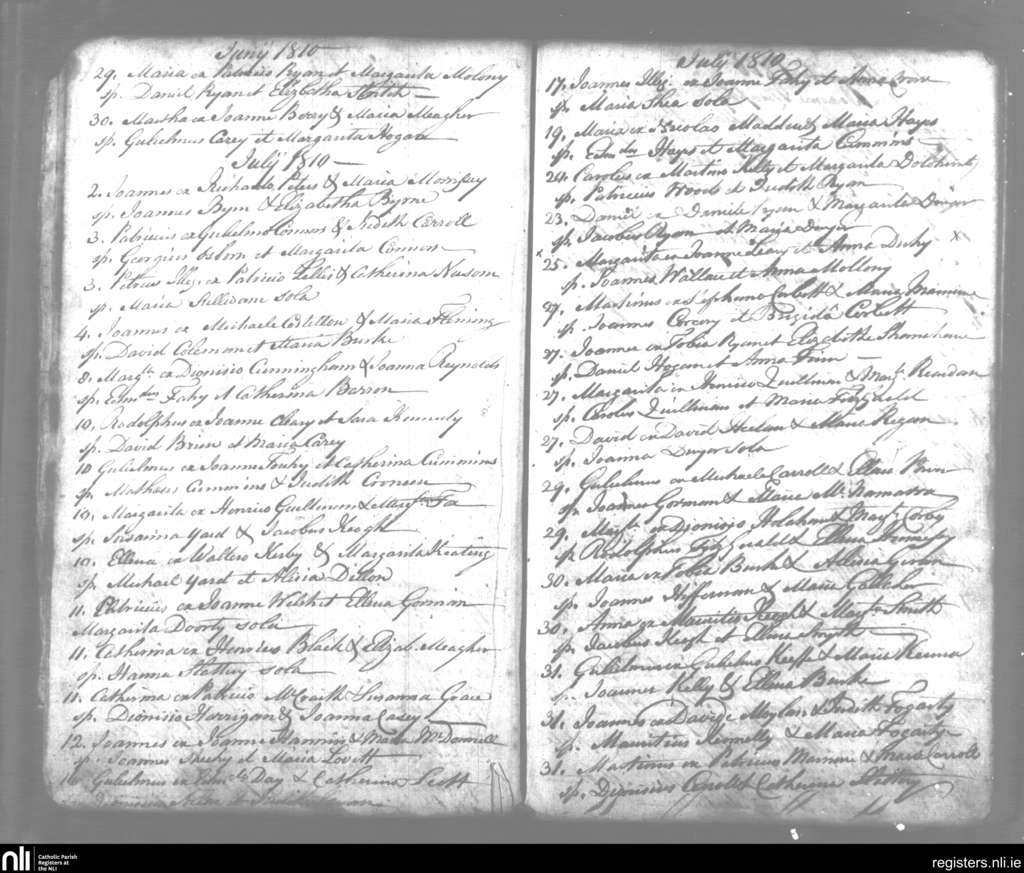 Junij 1810
29. Maria ex Patricio Ryan et Margarita Molony
sp. Daniel Ryan et Elizbetha
30. Martha ex Joanne Boray & Maria Meagher
sp. Gulielmus Carey et Margarita Hogan
Julij 1810
2. Joannes ex Richardo Peters & Maria
sp. Joannes Byrn & Elizabetha Byrne
3. Patricius ex Gulielmo Connors & Judith Carroll
sp. Georgius Osborn et Margarita Connors
3. Petrus Illeg. ex Patricio & Catherina
sp. Maria Sullivane sola
4. Joannes ex Michaele Costellow & Maria Fleming
sp. David Colemon et Maria Burke
8. Margta. ex Dionisio Cunningham & Joanna Reynolds
sp. Edmdus Fahy et Catherina Barron
10. Rodolphus ex Joanne Cleary et Sara Kennedy
sp. David Brien et Maria Carey
10 Gulielmus ex Joanne Fouhy et Catherina Cummins
sp. Matheus Cummins & Judith
10. Margarita ex Henrico Guilliman & Fox
sp. Susanna Yard & Jacobus Keogh
10. Ellena ex Waltero Kirby & Margarita Keating
sp. Michael Yard et Alisia
11. Patricius ex Joanne Welsh et Ellena Gorman
Margarita Doorty sola
11. Catherina ex Henrico Black & Elizab. Meagher
sp. Hanna Slattery sola
11. Catherina ex Patricio McCraith & Susanna Grace
sp. Dionisio Horrigan & Joanna Casey
12. Joannes ex Joanne Hannin & Maria McDonnell
sp. Joannes Sheehy et Maria Lovett
16 Gulielmus ex Day & Catherina Scott
et
July 1810
17. Joannes Illeg. ex Joanne Fahy et Anna
sp. Maria Shea sola
19. Maria ex Nicolao Madden & Maria Hayes
sp. Edmdus Hayes et Margarita Cummins
24. Carolus ex Martino Kelly et Margarita
sp. Patricius Woods et Judith Ryan
23. Daniel ex Daniele Ryan & Margarita Dwyer
sp. Jacobus Ryan et Maria Dwyer
x 25. Margarita ex Joanne Leary et Anna Duhy x
sp. Joannes Wallace et Anna Mollony
27. Martinus ex Stephano Corbett & Maria
sp. Joannes Corcory et Brigida Corbett
27. Joannes ex Tobia Ryan et Elizabetha
sp. Daniel Hogan et Anna
27. Margarita ex Henrico Quillinan & Margt. Reardan
sp. Carolus Quillinan et Maria Fitzgerald
27. David ex David & Maria Regan
sp. Joanna Dwyer sola
29. Gulielmus ex Michaele Carroll & Ellena
sp. Joannes Gorman & Maria McNamarra
29. Margt. ex Dionisio Holahan & Margt. Corby
sp. Rodolphus Fitzgerald & Ellena Hennessy
30. Maria ex Tobia Burke & Allisia
sp. Joannes Heffernan & Maria
30. Anna ex Mauritio Keogh & Margta. Smith
sp. Jacobus Keogh et Ellena Smyth
31. Gulielmus ex Gulielmo Keefe & Maria
sp. Joannes Kelly & Ellena Burke
31. Joannes ex Davide Moylan & Judith Fogarty
sp. Mauritius Kennelly & Maria Fogarty
31. Martinus ex Patricio & Maria Carroll
sp. Dionisius Carroll & Catherina Slattery
nli
Catholic Parish
Registers at
the NLI
registers.nli.ie